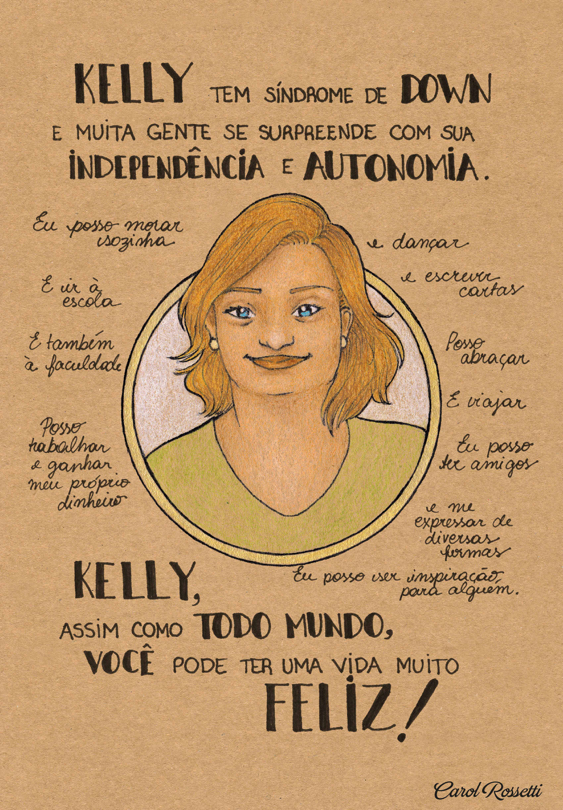 KELLY TEM SÍNDROME DE DOWN
E MUITA GENTE SE SURPREENDE COM SUA
INDEPENDÊNCIA E AUTONOMIA.
Eu posso morar
sozinha
E ir à
escola
E também
à faculdade
Posso
trabalhar
e ganhar
meu próprio
dinheiro
e dançar
e escrever
cartas
Posso
abraçar
E viajar
Eu posso
ter amigos
e me
expressar de
diversas
formas
Eu posso ser inspiração
para alguém.
KELLY,
ASSIM COMO TODO MUNDO,
VOCÊ PODE TER UMA VIDA MUITO
FELIZ!
Carol Rossetti